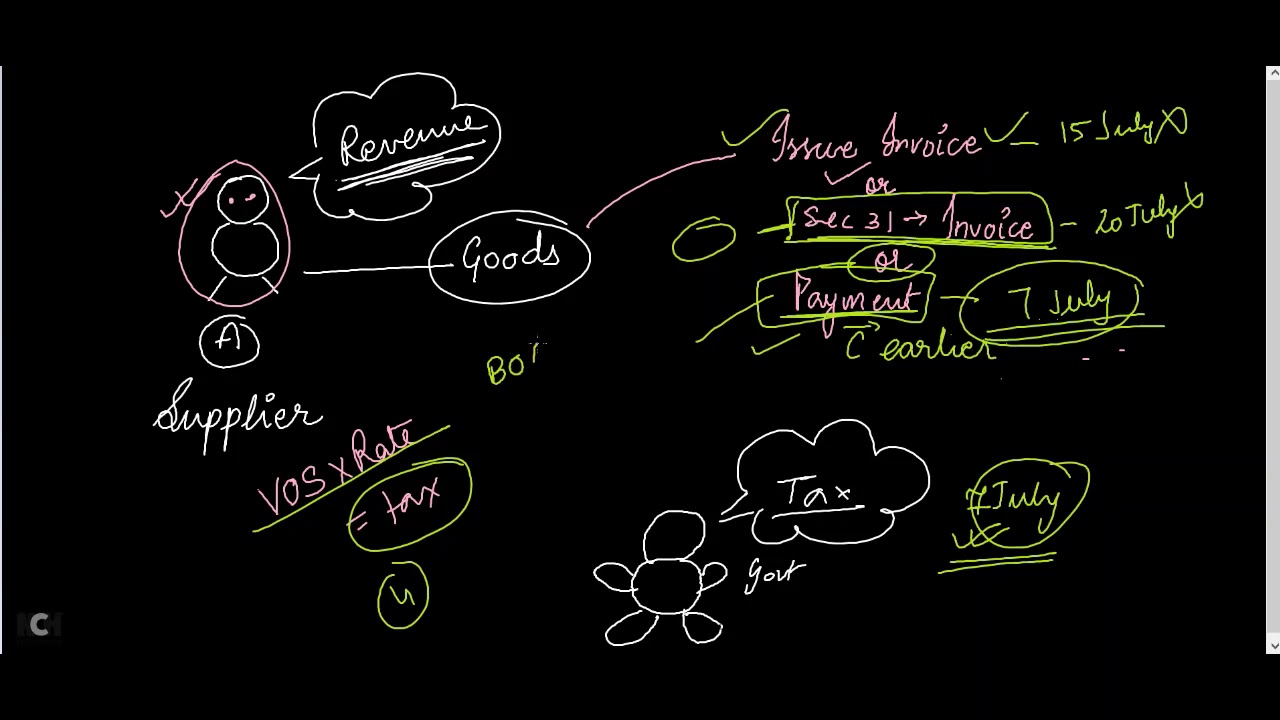 Revenue
Issue Invoice - 15 July
or
Sec 31 → Invoice - 20 July
or
Payment - 7 July
C earlier
Goods
A
Supplier
VOS x Rate
= tax
Tax
7 July
Govt